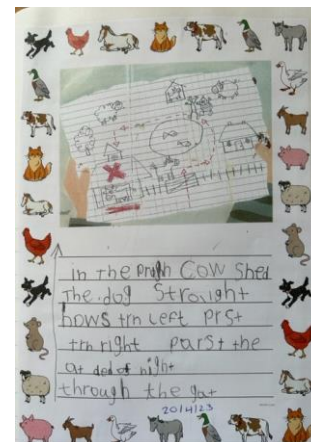 in the prugh Cow shed
The dog Strought
hows trn Left Prst
trn right parst the
at ded of night
through the gat
20/4/23